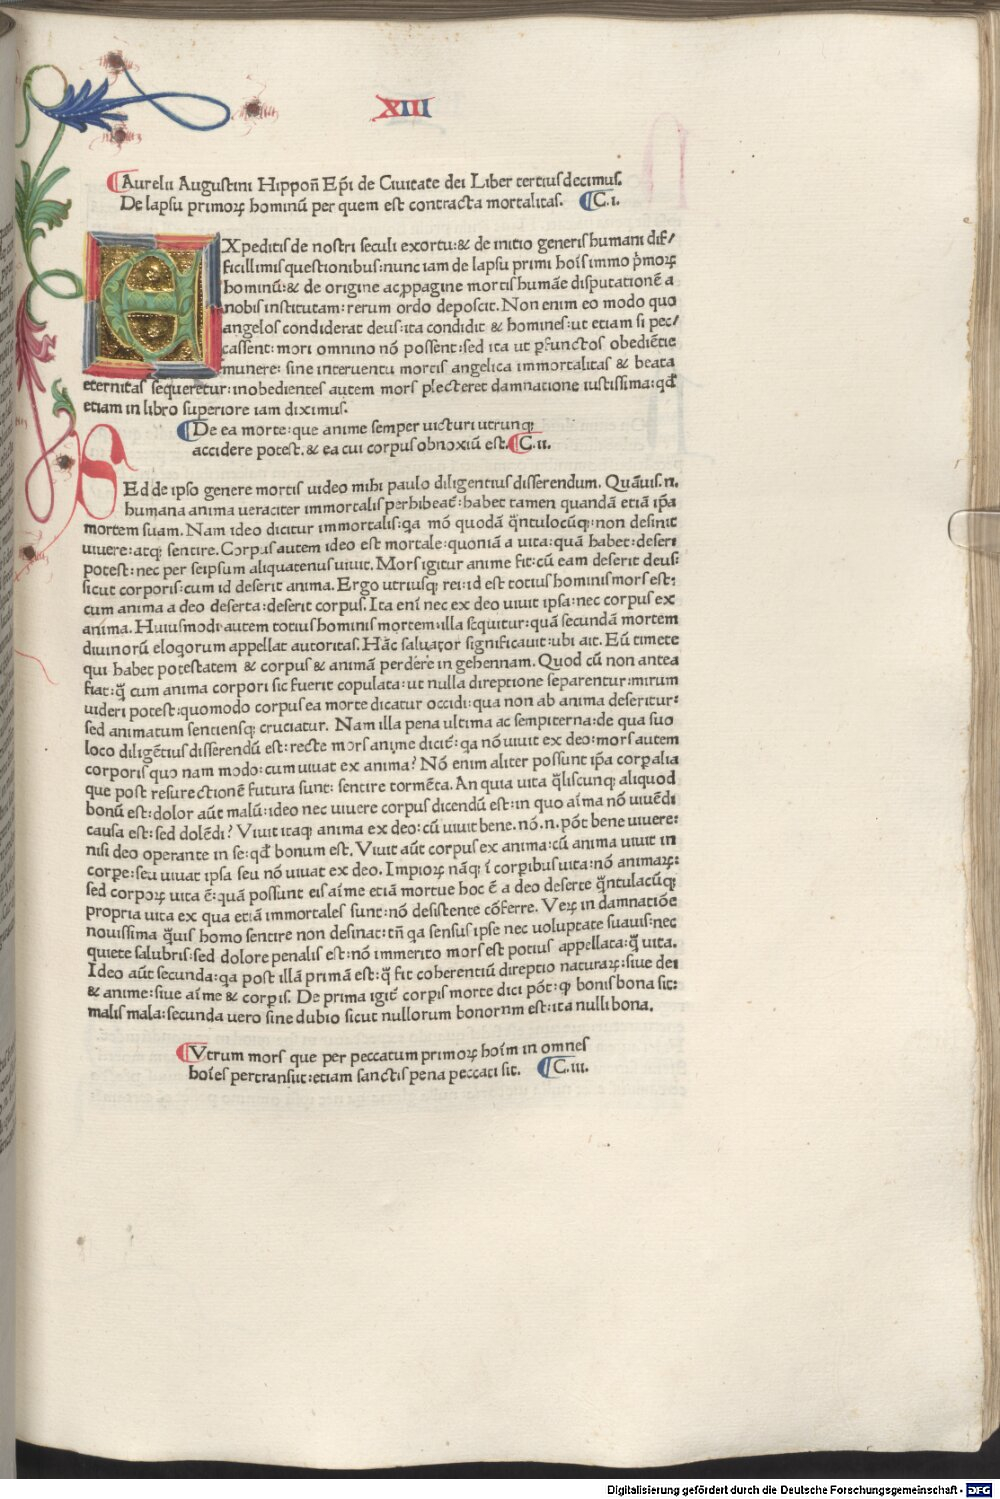 XIII
Aurelii Augustini Hippoñ Ep̃i de Ciuitate dei Liber tertiusdecimus.
De lapsu primoꝝ hominũ per quem est contracta mortalitas. C.i.
EXpeditis de nostri seculi exortu:& de initio generis humani dif/
ficillimis questionibus:nunc iam de lapsu primi hoĩs immo p̃moꝝ
hominũ:& de origine ac ꝓpagine mortis humãe disputationẽ a
nobis institutam:rerum ordo deposcit. Non enim eo modo quo
angelos condiderat deus:ita condidit & homines:ut etiam si pec/
cassent:mori omnino nõ possent:sed ita ut ꝑfunctos obediẽtie
munere: sine interuentu mortis angelica immortalitas & beata
eternitas sequeretur:inobedientes autem mors plecteret damnatione iustissima:qđ
etiam in libro superiore iam diximus.
De ea morte:que anime semper uicturi utrunq;
accidere potest.& ea cui corpus obnoxiũ est. C.ii.
SEd de ipso genere mortis uideo mihi paulo diligentius disserendum. Quãuis.n.
humana anima ueraciter immortalis perhibeat̃:habet tamen quandã etiã ip̃a
mortem suam. Nam ideo dicitur immortalis:qa mõ quodã q̃ntulocũq;:non desinit
uiuere:atq; sentire. Corpus autem ideo est mortale:quoniã a uita:quã habet:deseri
potest:nec per seipsum aliquatenus uiuit. Mors igitur anime fit:cũ eam deserit deus:
sicut corporis:cum id deserit anima. Ergo utriusq; rei:id est totius hominis mors est:
cum anima a deo deserta:deserit corpus. Ita enĩ nec ex deo uiuit ipsa:nec corpus ex
anima. Huiusmodi autem totius hominis mortem:illa seq̃uitur:quã secundã mortem
diuinorũ eloqorum appellat autoritas. Hãc saluator significauit:ubi ait. Eũ timete
qui habet potestatem & corpus & animã perdere in gehennam. Quod cũ non antea
fiat:q̃ cum anima corpori sic fuerit copulata:ut nulla direptione separentur:mirum
uideri potest:quomodo corpus ea morte dicatur occidi:qua non ab anima deseritur:
sed animatum sentiensq; cruciatur. Nam illa pena ultima ac sempiterna:de qua suo
loco diligẽtius disserendũ est:recte mors anime dicit̃:qa nõ uiuit ex deo:mors autem
corporis quo nam modo:cum uiuat ex anima? Nõ enim aliter possunt ip̃a corꝑalia
que post resurectionẽ futura sunt: sentire tormẽta. An quia uita q̃liscunq; aliquod
bonũ est:dolor aũt malũ:ideo nec uiuere corpus dicendũ est:in quo aĩma nõ uiuẽdi
causa est:sed dolẽdi? Viuit itaq; anima ex deo:cũ uiuit bene.nõ.n.põt bene uiuere:
nisi deo operante in se:qđ bonum est. Viuit aũt corpus ex anima:cũ anima uiuit in
corꝑe:seu uiuat ipsa seu nõ uiuat ex deo. Impioꝝ nãq; ĩ corꝑibus uita:nõ animaꝝ:
sed corpoꝝ uita ẽ:quã possunt eis aĩme etiã mortue hoc ẽ a deo deserte q̃ntulacũq;
propria uita ex qua etiã immortales sunt:nõ desistente cõferre. Veꝝ in damnatiõe
nouissima q̃uis homo sentire non desinat:tñ qa sensus ipse nec uoluptate suauis:nec
quiete salubris:sed dolore penalis est:nõ immerito mors est potius appellata:q̃ uita.
Ideo aũt secunda:qa post illã primã est:q̃ fit coherentiũ direptio naturaꝝ:siue dei
& anime:siue aĩme & corꝑis. De prima igit̃ corꝑis morte dici põt:q; bonis bona sit:
malis mala:secunda uero sine dubio sicut nullorum bonornm est:ita nulli bona.
Vtrum mors que per peccatum primoꝝ hoĩm in omnes
hoĩes pertransiit:etiam sanctis pena peccati sit. C.iii.
Digitalisierung gefördert durch die Deutsche Forschungsgemeinschaft - DFG